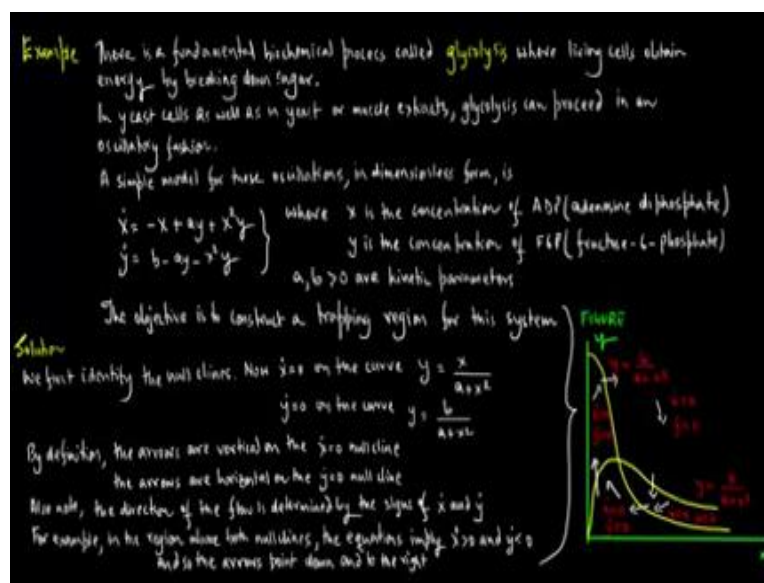 Example There is a fundamental biochemical process called glycolysis where living cells obtain
energy by breaking down sugar.
In yeast cells as well as in yeast or muscle extracts, glycolysis can proceed in an
oscillatory fashion.
A simple model for these oscillations, in dimensionless form, is
ẋ = -x + ay + x²y
ẏ = b - ay - x²y
where x is the concentration of ADP (adenosine diphosphate)
y is the concentration of F6P (fructose-6-phosphate)
a, b > 0 are kinetic parameters
The objective is to construct a trapping region for this system
Solution
We first identify the null clines. Now ẋ=0 on the curve y = x/(a+x²)
ẏ=0 on the curve y = b/(a+x²)
By definition, the arrows are vertical on the ẋ=0 nullcline
the arrows are horizontal on the ẏ=0 nullcline
Also note, the direction of the flow is determined by the signs of ẋ and ẏ
For example, in the region above both nullclines, the equations imply ẋ>0 and ẏ<0
and so the arrows point down and to the right
FIGURE
y
x